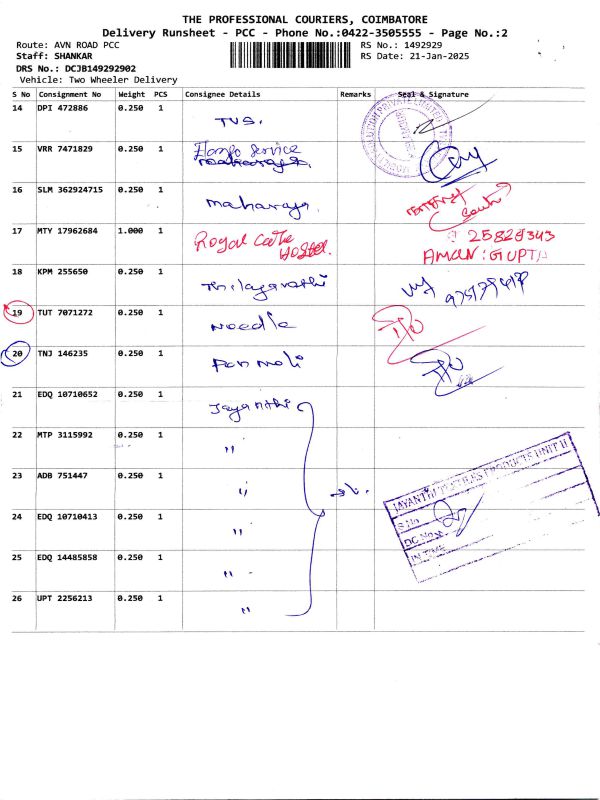 THE PROFESSIONAL COURIERS, COIMBATORE
Delivery Runsheet - PCC - Phone No.:0422-3505555 - Page No.:2
Route: AVN ROAD PCC RS No.: 1492929
Staff: SHANKAR RS Date: 21-Jan-2025
DRS No.: DCJB149292902
Vehicle: Two Wheeler Delivery
S No Consignment No Weight PCS Consignee Details Remarks Seal & Signature
14 DPI 472886 0.250 1 TVS.
15 VRR 7471829 0.250 1 Service
16 SLM 362924715 0.250 1 maharaja.
17 MTY 17962684 1.000 1 Royal Hostel. 25824343
AMAN: GUPTA
18 KPM 255650 0.250 1 Thilagavathi
19 TUT 7071272 0.250 1 Needle
20 TNJ 146235 0.250 1 Pon moli
21 EDQ 10710652 0.250 1 Jayanthi
22 MTP 3115992 0.250 1 "
23 ADB 751447 0.250 1 "
24 EDQ 10710413 0.250 1 "
25 EDQ 14485858 0.250 1 "
26 UPT 2256213 0.250 1 "
JAYANTHI PRODUCTS UNIT II
S.No
DC No
IN TIME